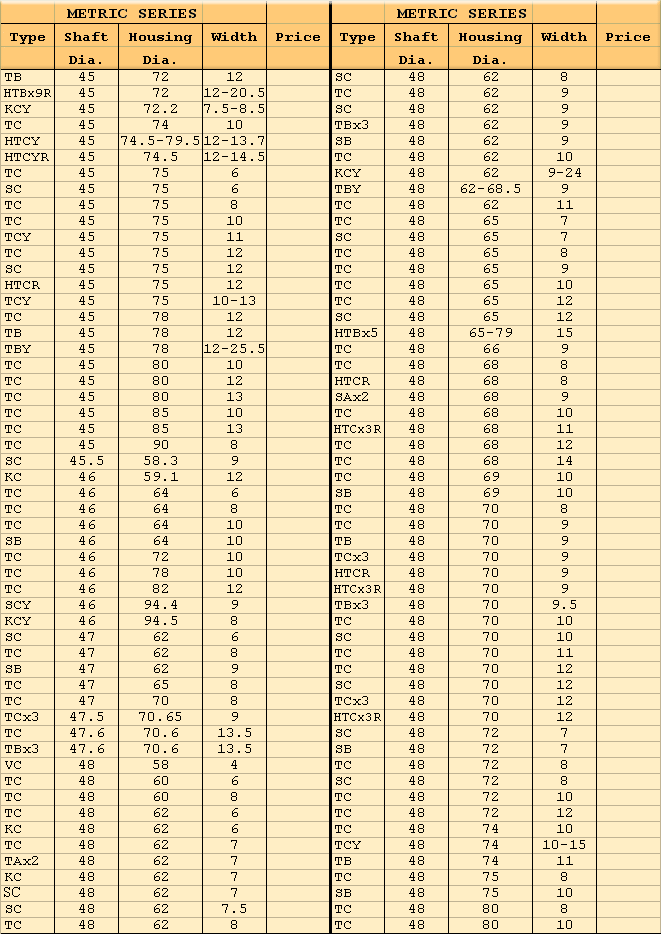 METRIC SERIES METRIC SERIES
Type Shaft Housing Width Price Type Shaft Housing Width Price
Dia. Dia. Dia. Dia.
TB 45 72 12 SC 48 62 8
HTBx9R 45 72 12-20.5 TC 48 62 9
KCY 45 72.2 7.5-8.5 SC 48 62 9
TC 45 74 10 TBx3 48 62 9
HTCY 45 74.5-79.5 12-13.7 SB 48 62 9
HTCYR 45 74.5 12-14.5 TC 48 62 10
TC 45 75 6 KCY 48 62 9-24
SC 45 75 6 TBY 48 62-68.5 9
TC 45 75 8 TC 48 62 11
TC 45 75 10 TC 48 65 7
TCY 45 75 11 SC 48 65 7
TC 45 75 12 TC 48 65 8
SC 45 75 12 TC 48 65 9
HTCR 45 75 12 TC 48 65 10
TCY 45 75 10-13 TC 48 65 12
TC 45 78 12 SC 48 65 12
TB 45 78 12 HTBx5 48 65-79 15
TBY 45 78 12-25.5 TC 48 66 9
TC 45 80 10 TC 48 68 8
TC 45 80 12 HTCR 48 68 8
TC 45 80 13 SAx2 48 68 9
TC 45 85 10 TC 48 68 10
TC 45 85 13 HTCx3R 48 68 11
TC 45 90 8 TC 48 68 12
SC 45.5 58.3 9 TC 48 68 14
KC 46 59.1 12 TC 48 69 10
TC 46 64 6 SB 48 69 10
TC 46 64 8 TC 48 70 8
TC 46 64 10 TC 48 70 9
SB 46 64 10 TB 48 70 9
TC 46 72 10 TCx3 48 70 9
TC 46 78 10 HTCR 48 70 9
TC 46 82 12 HTCx3R 48 70 9
SCY 46 94.4 9 TBx3 48 70 9.5
KCY 46 94.5 8 TC 48 70 10
SC 47 62 6 SC 48 70 10
TC 47 62 8 TC 48 70 11
SB 47 62 9 TC 48 70 12
TC 47 65 8 SC 48 70 12
TC 47 70 8 TCx3 48 70 12
TCx3 47.5 70.65 9 HTCx3R 48 70 12
TC 47.6 70.6 13.5 SC 48 72 7
TBx3 47.6 70.6 13.5 SB 48 72 7
VC 48 58 4 TC 48 72 8
TC 48 60 6 SC 48 72 8
TC 48 60 8 TC 48 72 10
TC 48 62 6 TC 48 72 12
KC 48 62 6 TC 48 74 10
TC 48 62 7 TCY 48 74 10-15
TAx2 48 62 7 TB 48 74 11
KC 48 62 7 TC 48 75 8
SC 48 62 7 SB 48 75 10
SC 48 62 7.5 TC 48 80 8
TC 48 62 8 TC 48 80 10